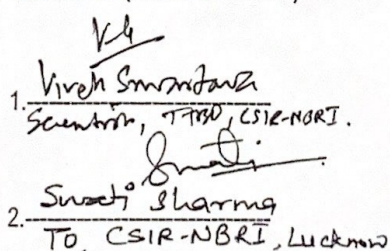 1. Vivek Srivastava
Scientist, TTBD, CSIR-NBRI.
2. Swati Sharma
TO, CSIR-NBRI, Lucknow